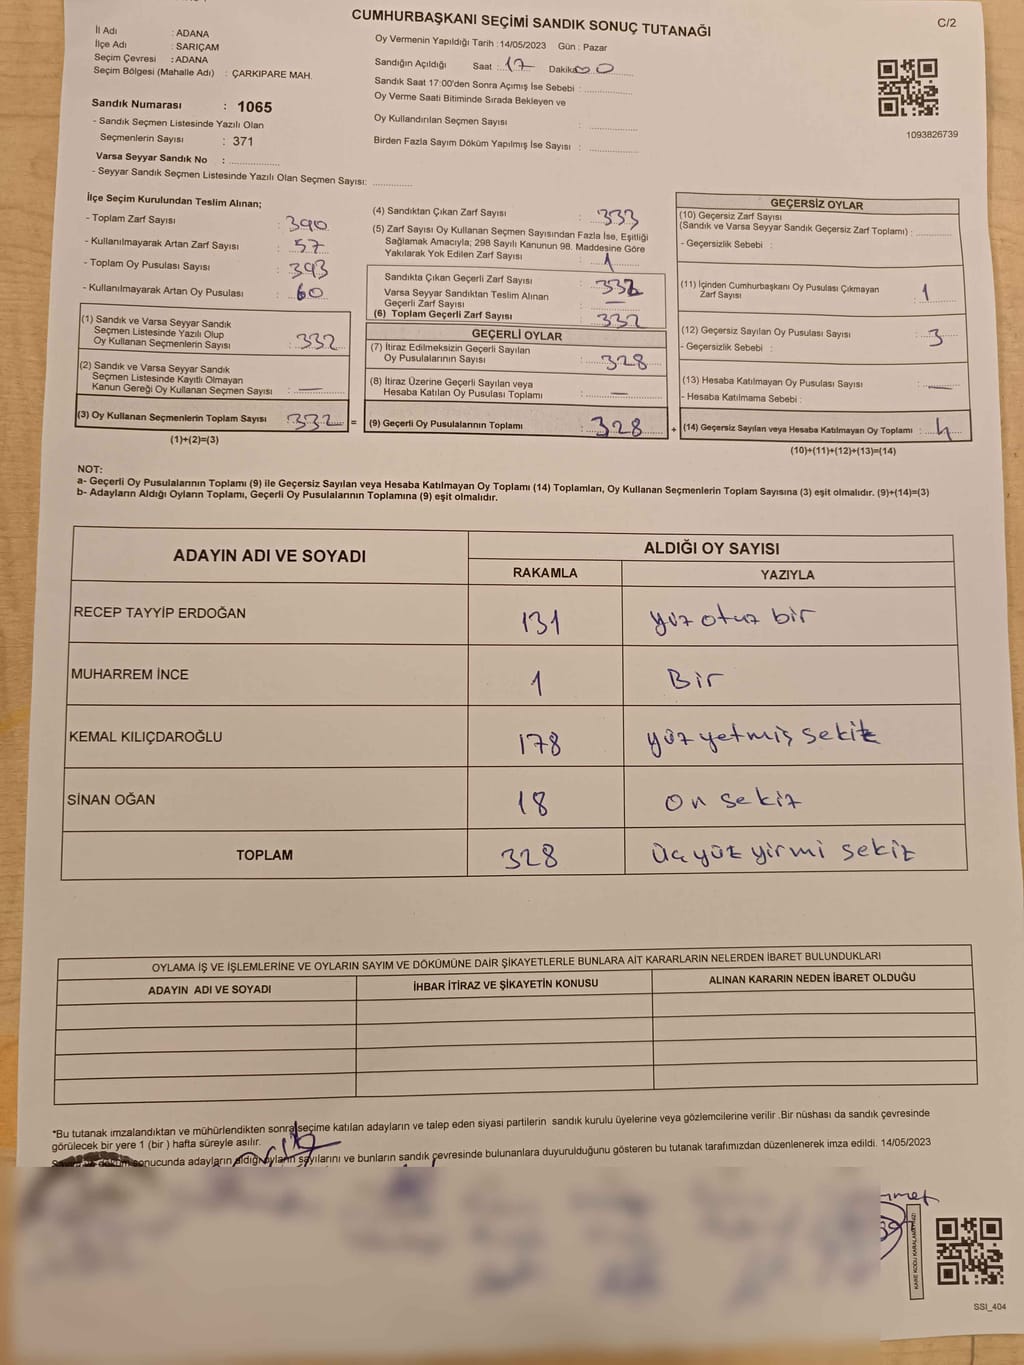 CUMHURBAŞKANI SEÇİMİ SANDIK SONUÇ TUTANAĞI
C/2
İl Adı : ADANA
İlçe Adı : SARIÇAM
Seçim Çevresi : ADANA
Seçim Bölgesi (Mahalle Adı) : ÇARKIPARE MAH.
Sandık Numarası : 1065
- Sandık Seçmen Listesinde Yazılı Olan
Seçmenlerin Sayısı : 371
Varsa Seyyar Sandık No : ..............
- Seyyar Sandık Seçmen Listesinde Yazılı Olan Seçmen Sayısı: ............
Oy Vermenin Yapıldığı Tarih : 14/05/2023 Gün : Pazar
Sandığın Açıldığı Saat : 17 Dakika 00
Sandık Saat 17:00'den Sonra Açımış İse Sebebi : ..............
Oy Verme Saati Bitiminde Sırada Bekleyen ve
Oy Kullandırılan Seçmen Sayısı : ..............
Birden Fazla Sayım Döküm Yapılmış İse Sayısı : ..............
1093826739
İlçe Seçim Kurulundan Teslim Alınan;
- Toplam Zarf Sayısı : 390
- Kullanılmayarak Artan Zarf Sayısı : 57
- Toplam Oy Pusulası Sayısı : 393
- Kullanılmayarak Artan Oy Pusulası : 60
(1) Sandık ve Varsa Seyyar Sandık
Seçmen Listesinde Yazılı Olup
Oy Kullanan Seçmenlerin Sayısı : 332
(2) Sandık ve Varsa Seyyar Sandık
Seçmen Listesinde Kayıtlı Olmayan
Kanun Gereği Oy Kullanan Seçmen Sayısı : —
(3) Oy Kullanan Seçmenlerin Toplam Sayısı : 332 =
(1)+(2)=(3)
(4) Sandıktan Çıkan Zarf Sayısı : 333
(5) Zarf Sayısı Oy Kullanan Seçmen Sayısından Fazla İse, Eşitliği
Sağlamak Amacıyla; 298 Sayılı Kanunun 98. Maddesine Göre
Yakılarak Yok Edilen Zarf Sayısı : 1
Sandıkta Çıkan Geçerli Zarf Sayısı : 332
Varsa Seyyar Sandıktan Teslim Alınan
Geçerli Zarf Sayısı : —
(6) Toplam Geçerli Zarf Sayısı : 332
GEÇERLİ OYLAR
(7) İtiraz Edilmeksizin Geçerli Sayılan
Oy Pusulalarının Sayısı : 328
(8) İtiraz Üzerine Geçerli Sayılan veya
Hesaba Katılan Oy Pusulası Toplamı : —
(9) Geçerli Oy Pusulalarının Toplamı : 328 +
GEÇERSİZ OYLAR
(10) Geçersiz Zarf Sayısı
(Sandık ve Varsa Seyyar Sandık Geçersiz Zarf Toplamı) : ..........
- Geçersizlik Sebebi :
(11) İçinden Cumhurbaşkanı Oy Pusulası Çıkmayan
Zarf Sayısı : 1
(12) Geçersiz Sayılan Oy Pusulası Sayısı : 3
- Geçersizlik Sebebi :
(13) Hesaba Katılmayan Oy Pusulası Sayısı : —
- Hesaba Katılmama Sebebi :
(14) Geçersiz Sayılan veya Hesaba Katılmayan Oy Toplamı : 4
(10)+(11)+(12)+(13)=(14)
NOT:
a- Geçerli Oy Pusulalarının Toplamı (9) ile Geçersiz Sayılan veya Hesaba Katılmayan Oy Toplamı (14) Toplamları, Oy Kullanan Seçmenlerin Toplam Sayısına (3) eşit olmalıdır. (9)+(14)=(3)
b- Adayların Aldığı Oyların Toplamı, Geçerli Oy Pusulalarının Toplamına (9) eşit olmalıdır.
ADAYIN ADI VE SOYADI
ALDIĞI OY SAYISI
RAKAMLA YAZIYLA
RECEP TAYYİP ERDOĞAN 131 yüz otuz bir
MUHARREM İNCE 1 Bir
KEMAL KILIÇDAROĞLU 178 yüz yetmiş sekiz
SİNAN OĞAN 18 on sekiz
TOPLAM 328 üç yüz yirmi sekiz
OYLAMA İŞ VE İŞLEMLERİNE VE OYLARIN SAYIM VE DÖKÜMÜNE DAİR ŞİKAYETLERLE BUNLARA AİT KARARLARIN NELERDEN İBARET BULUNDUKLARI
ADAYIN ADI VE SOYADI İHBAR İTİRAZ VE ŞİKAYETİN KONUSU ALINAN KARARIN NEDEN İBARET OLDUĞU
*Bu tutanak imzalandıktan ve mühürlendikten sonra seçime katılan adayların ve talep eden siyasi partilerin sandık kurulu üyelerine veya gözlemcilerine verilir .Bir nüshası da sandık çevresinde
görülecek bir yere 1 (bir ) hafta süreyle asılır.
sonucunda adayların aldığı oyların sayılarını ve bunların sandık çevresinde bulunanlara duyurulduğunu gösteren bu tutanak tarafımızdan düzenlenerek imza edildi. 14/05/2023
SSI_404